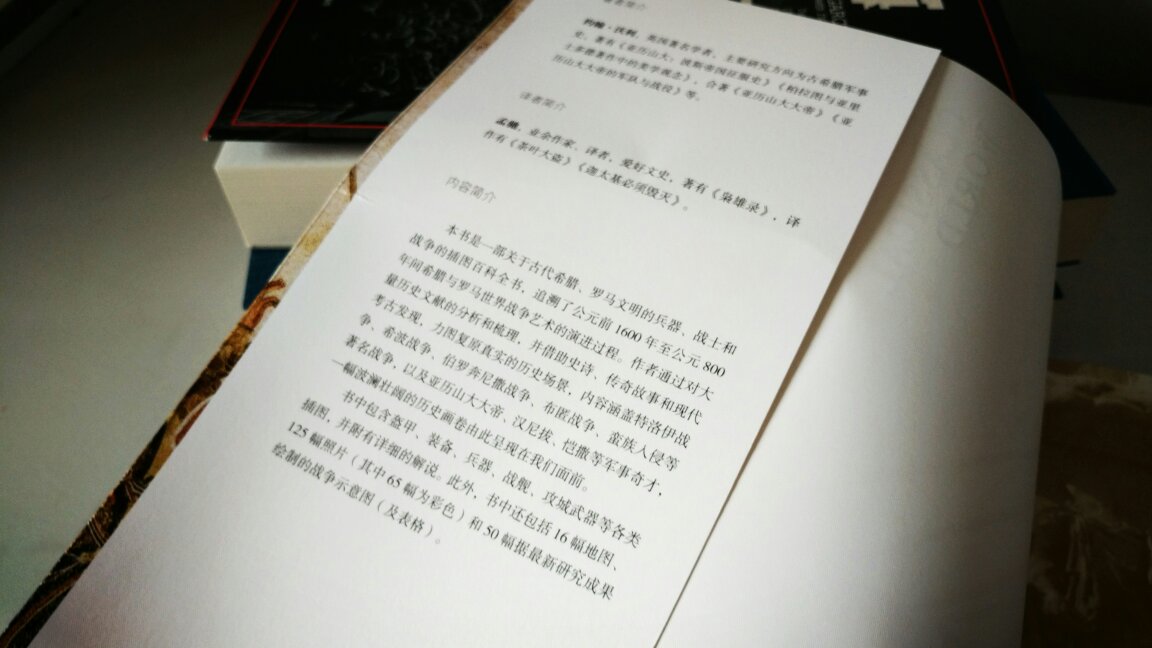 著者简介
约翰·沃利，英国著名学者，主要研究方向为古希腊军事
史，著有《亚历山大：波斯帝国征服史》《柏拉图与亚里
士多德著作中的美学观念》，合著《亚历山大大帝》《亚
历山大大帝的军队与战役》等。
译者简介
孟驰，业余作家、译者，爱好文史，著有《枭雄录》，译
作有《茶叶大盗》《迦太基必须毁灭》。
内容简介
本书是一部关于古代希腊、罗马文明的兵器、战士和
战争的插图百科全书，追溯了公元前1600年至公元800
年间希腊与罗马世界战争艺术的演进过程。作者通过对大
量历史文献的分析和梳理，并借助史诗、传奇故事和现代
考古发现，力图复原真实的历史场景，内容涵盖特洛伊战
争、希波战争、伯罗奔尼撒战争、布匿战争、蛮族入侵等
著名战争，以及亚历山大大帝、汉尼拔、恺撒等军事奇才，
一幅波澜壮阔的历史画卷由此呈现在我们面前。
书中包含盔甲、装备、兵器、战舰、攻城武器等各类
插图，并附有详细的解说。此外，书中还包括16幅地图、
125幅照片（其中65幅为彩色）和50幅据最新研究成果
绘制的战争示意图（及表格）。